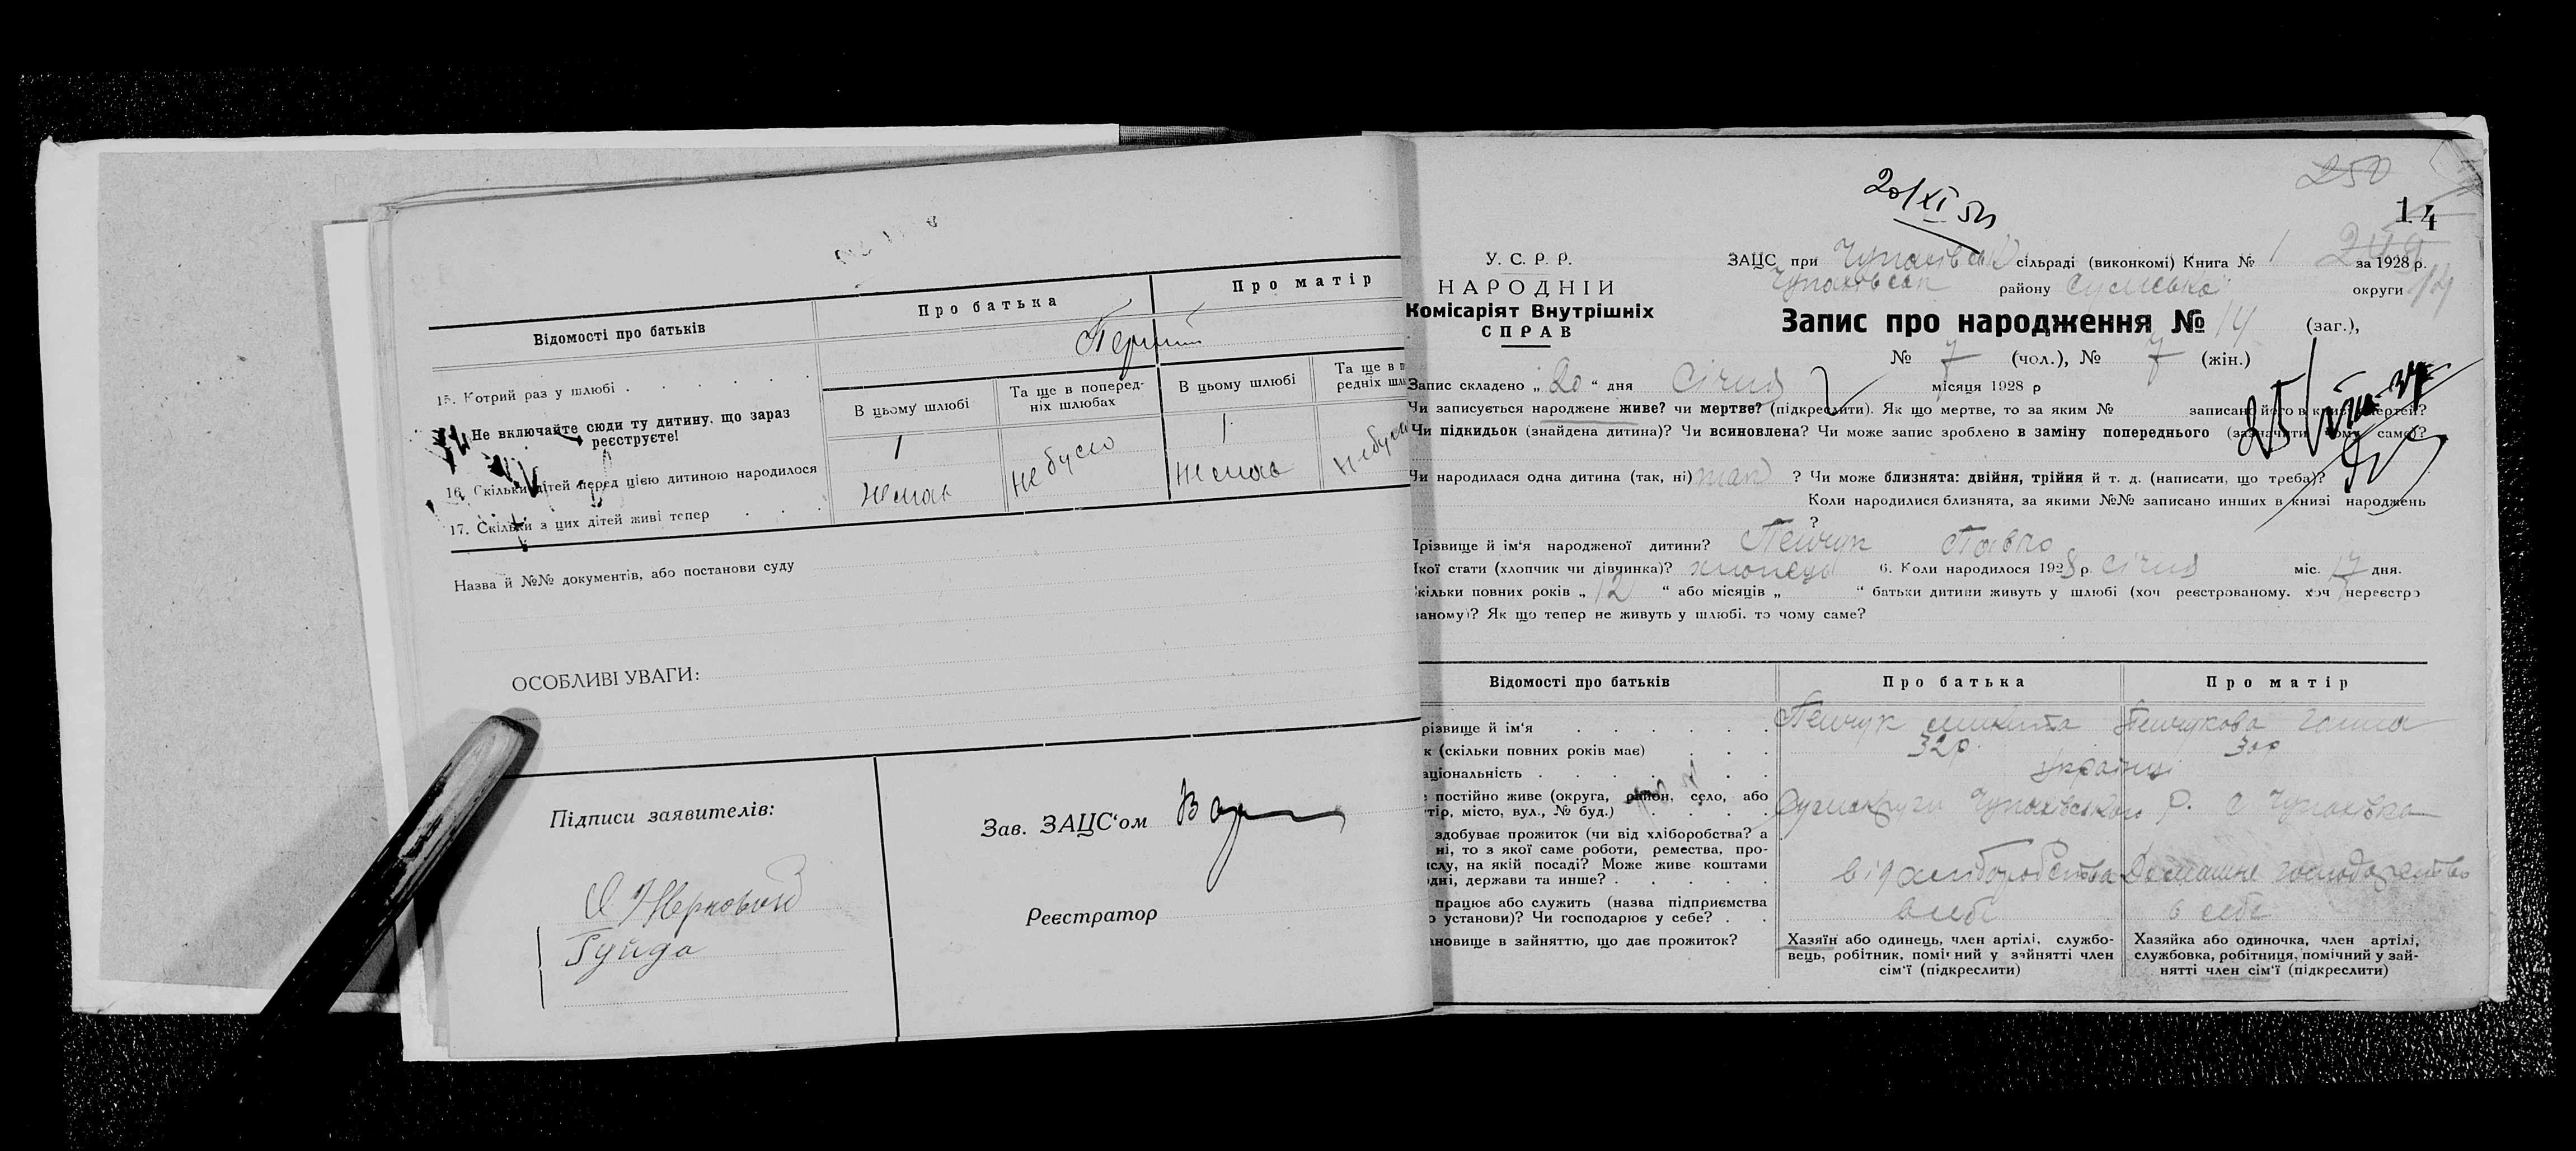 Відомості про батьків
Про батька
Про матір
15. Котрий раз у шлюбі
Перший
Не включайте сюди ту дитину, що зараз
реєструєте!
В цьому шлюбі
Та ще в поперед-
ніх шлюбах
В цьому шлюбі
Та ще в п
редніх шлю
16. Скільки дітей перед цією дитиною народилося
1
не було
1
не було
17. Скільки з цих дітей живі тепер
немає
немає
Назва й №№ документів, або постанови суду
ОСОБЛИВІ УВАГИ:
Підписи заявителів:
Гуйда
Зав. ЗАЦС‘ом
Реєстратор
250
20/XI 51
14
У. С. Р. Р.
НАРОДНІЙ
Комісаріят Внутрішніх
СПРАВ
ЗАЦС при Чупахівськ сільраді (виконкомі) Книга № 1 за 1928 р.
Чупахівськ району Сумсько округи 14
Запис про народження № 14 (заг.),
№ 7 (чол.), № 7 (жін.)
Запис складено „ 20 “ дня Січня місяця 1928 р
Чи записується народжене живе? чи мертве? (підкреслити). Як що мертве, то за яким № записано його в книзі смертей?
Чи підкидьок (знайдена дитина)? Чи всиновлена? Чи може запис зроблено в заміну попереднього (зазначити чому саме)?
Чи народилася одна дитина (так, ні) так ? Чи може близнята: двійня, трійня й т. д. (написати, що треба)?
Коли народилися близнята, за якими №№ записано инших в книзі народжень
?
Прізвище й ім‘я народженої дитини? Пенчук Павло
Якої стати (хлопчик чи дівчинка)? хлопець 6. Коли народилося 1928 р. січня міс. 17 дня.
кільки повних років „ 12 “ або місяців „ “ батьки дитини живуть у шлюбі (хоч реєстрованому, хоч нереєстро
ваному)? Як що тепер не живуть у шлюбі, то чому саме?
Відомості про батьків
Про батька
Про матір
різвище й ім‘я
Пенчук Микита
Пенчукова Ганна
к (скільки повних років має)
32 р.
30 р
аціональність
українці
постійно живе (округа, район, село, або
тір, місто, вул., № буд.)
Сумокруги Чупахівського р. с Чупахівка
здобуває прожиток (чи від хліборобства? а
ні, то з якої саме роботи, ремества, про-
ислу, на якій посаді? Може живе коштами
дні, держави та инше?
від хліборобства
Домашнє господарство
працює або служить (назва підприємства
о установи)? Чи господарює у себе?
в себе
в себе
ановище в зайняттю, що дає прожиток?
Хазяїн або одинець, член артілі, службо-
вець, робітник, помічний у зайнятті член
сім‘ї (підкреслити)
Хазяйка або одиночка, член артілі,
службовка, робітниця, помічний у зай-
нятті член сім‘ї (підкреслити)